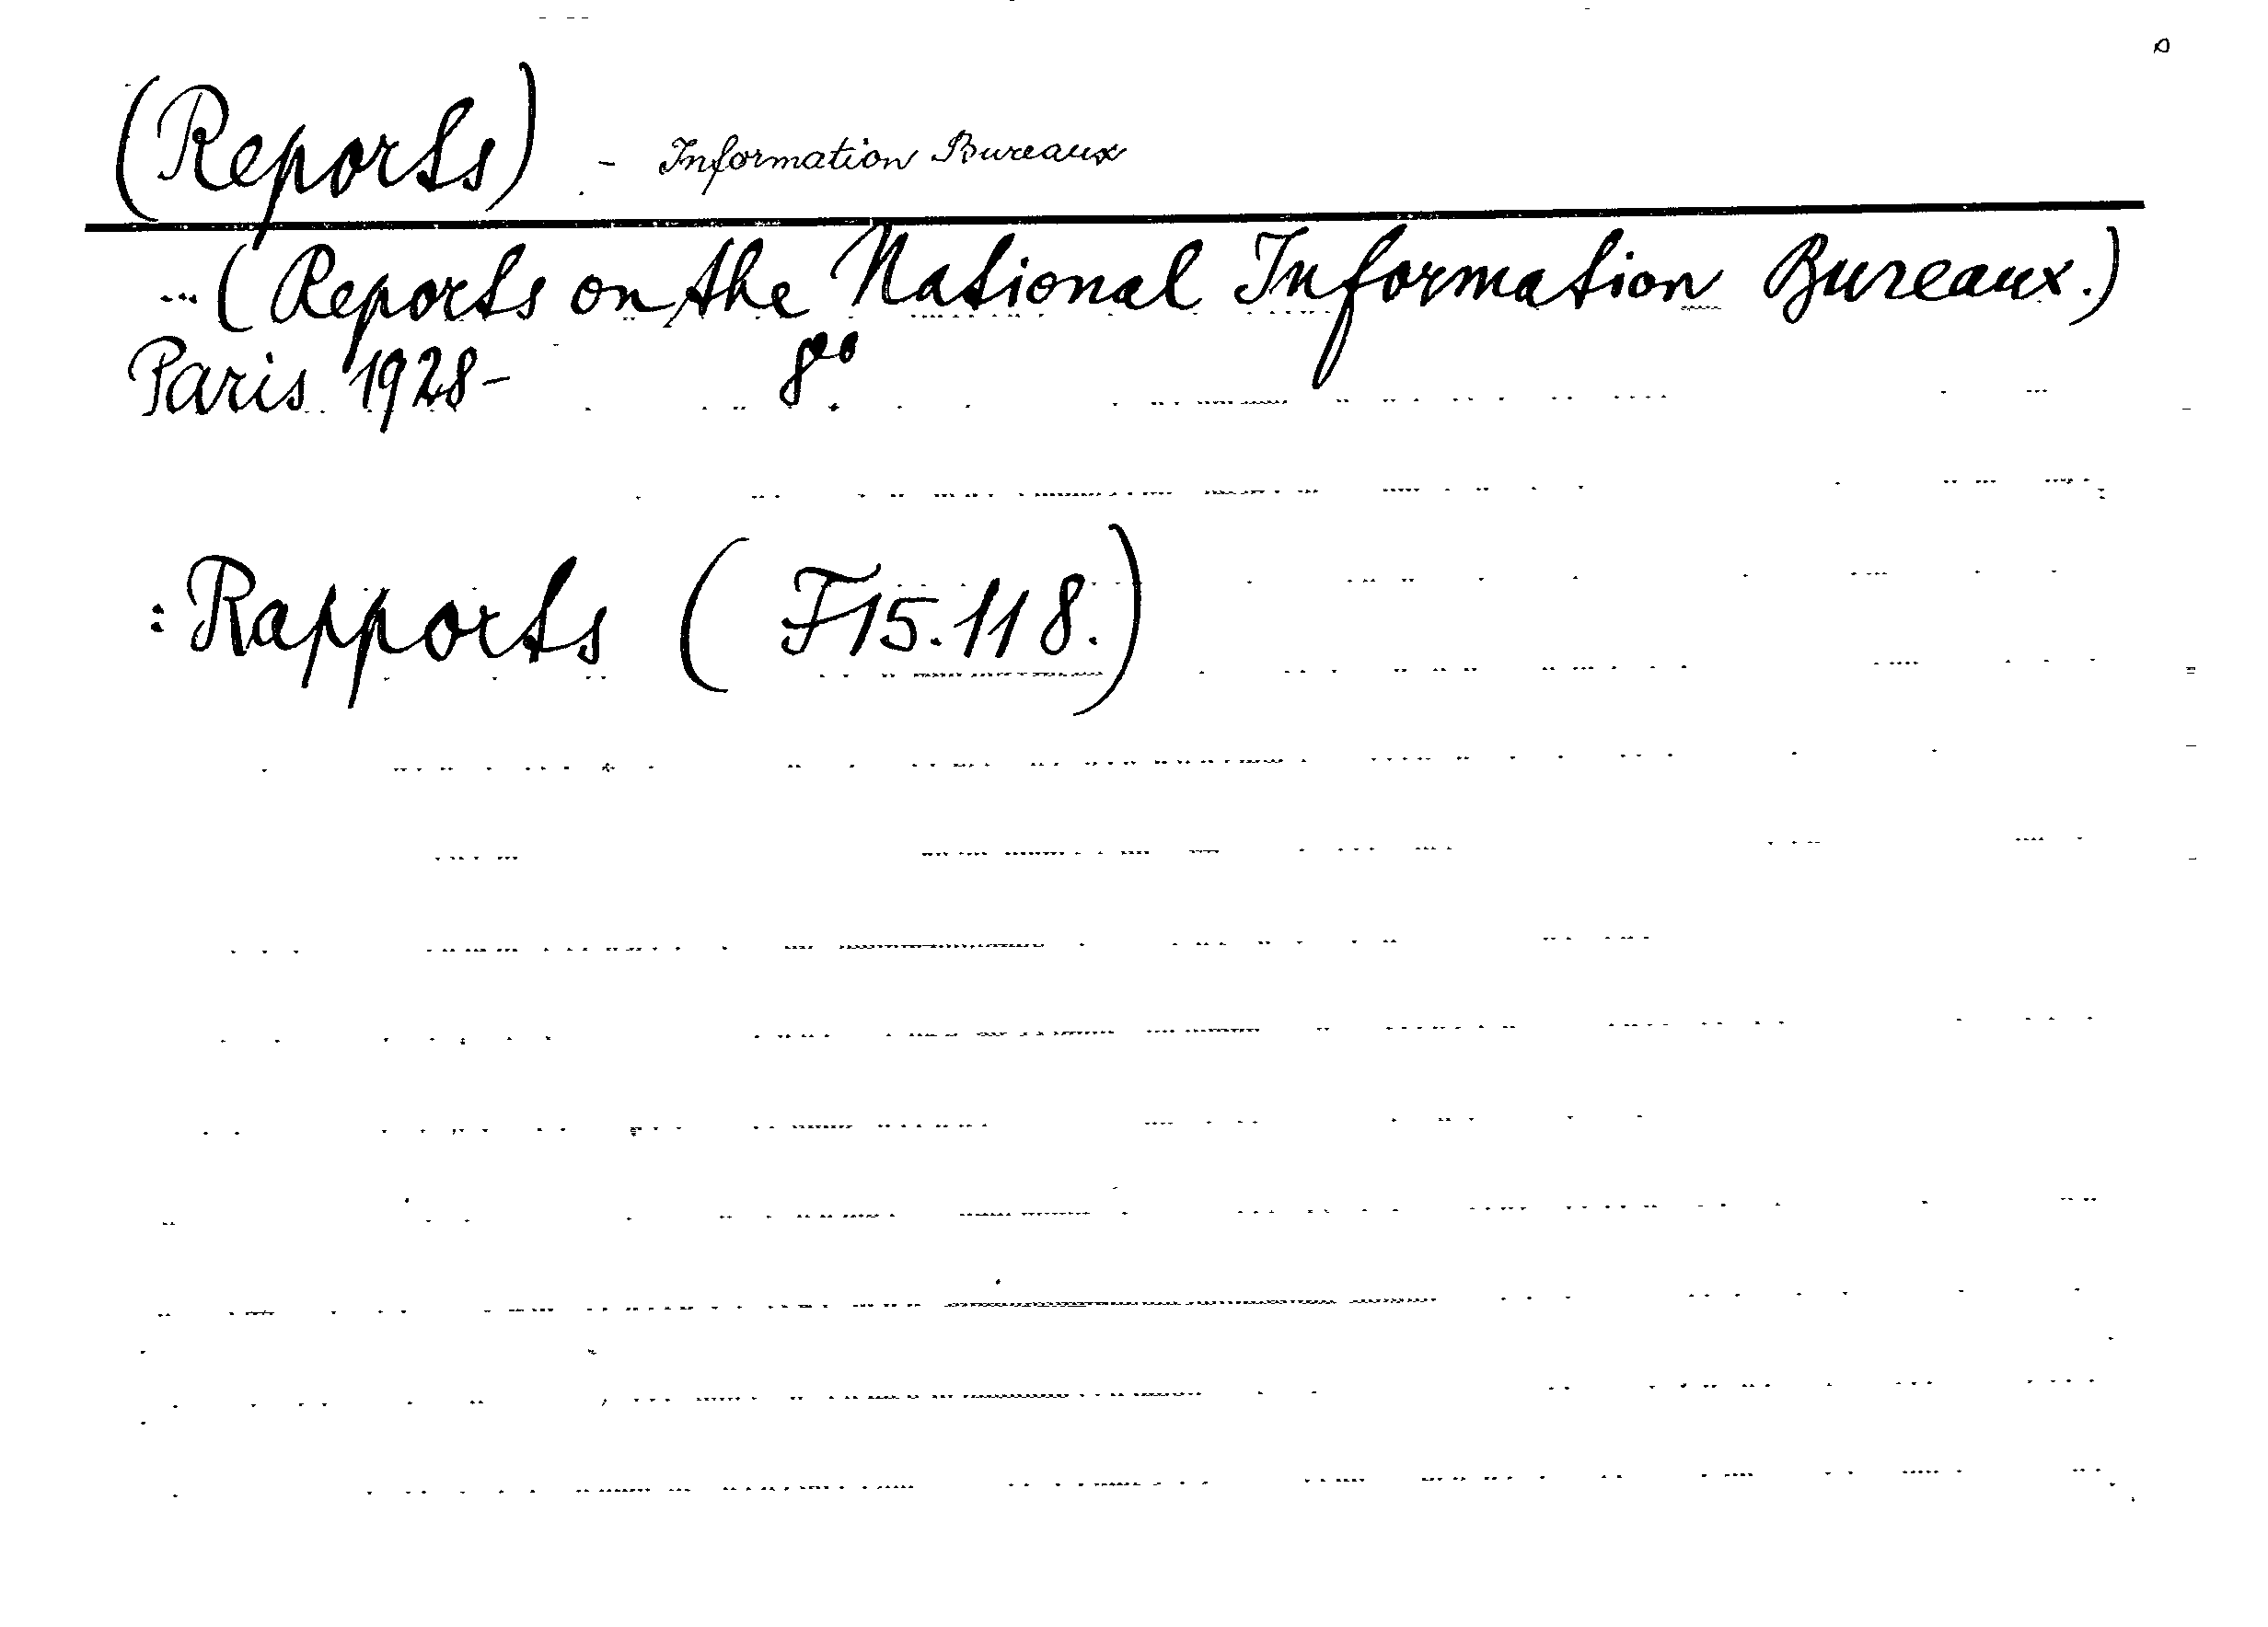 (Reports) - Information Bureaux
... (Reports on the National Information Bureaux.)
Paris 1928- 8°
: Rapports (F15.118.)